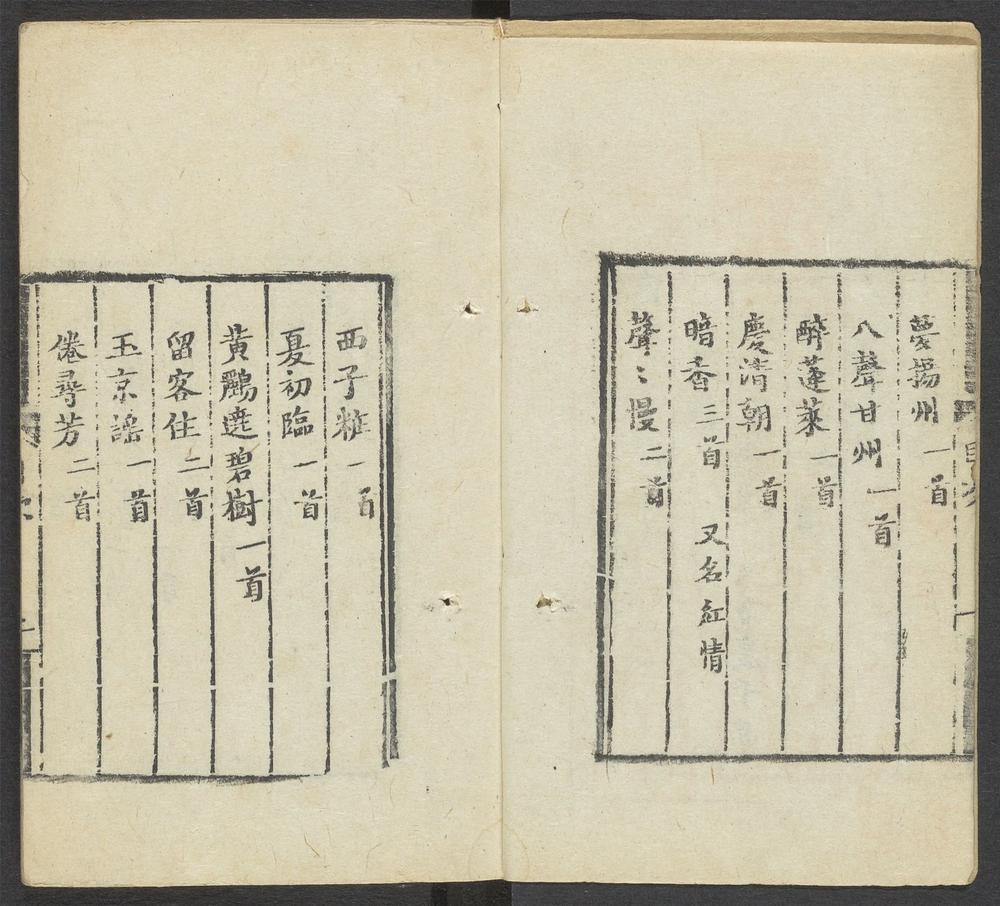 夢揚州一首
八聲甘州一首
醉蓬萊一首
慶清朝一首
暗香三首 又名紅情
聲〻慢二首
西子粧一首
夏初臨一首
黃鸝遶碧樹一首
留客住二首
玉京謠一首
倦尋芳二首